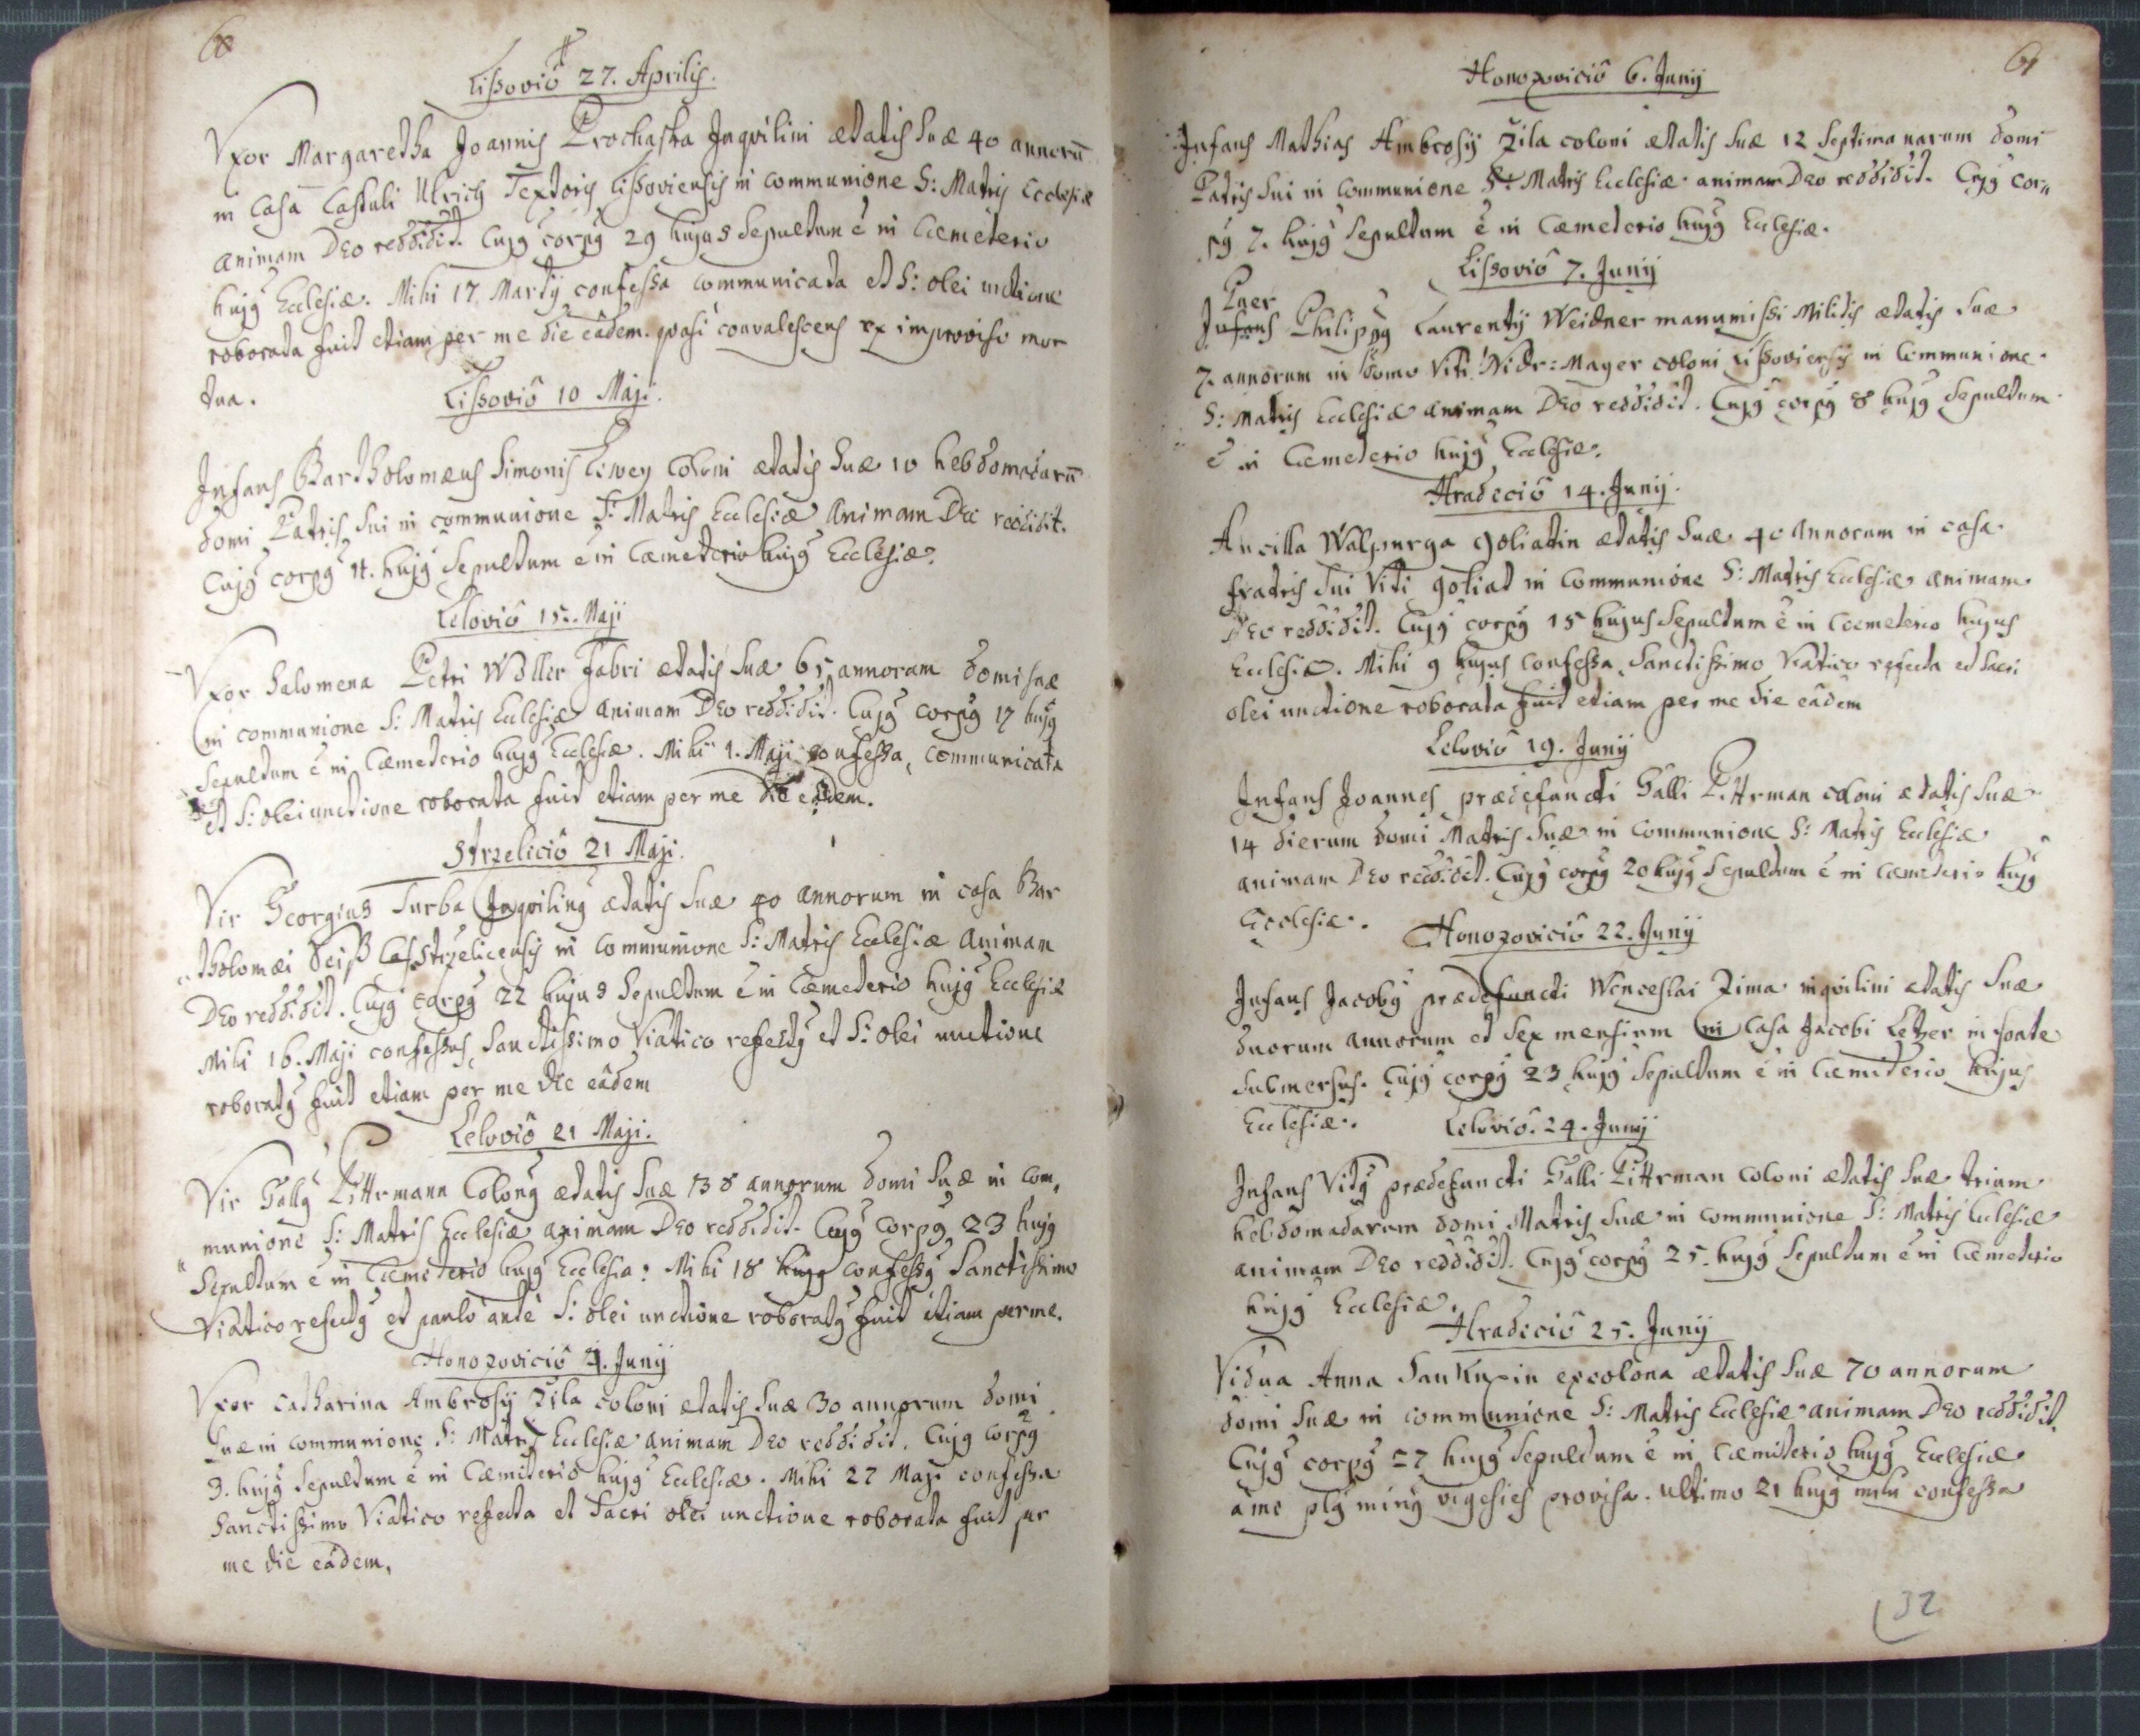 60
Lißoviô 27. Aprilis.
Vxor Margaretha Joannis Prochaska Inqvilini ætatis suæ 40 annorū
in Casa Castuli Ulrich Textoris Lißoviensis in communione S: Matris Ecclesiæ
animam Deo reddidit. Cujg corpg 29 hujus Sepultum ē in Cæmeterio
hujg Ecclesiæ. Mihi 17 Martij confessa communicata et S: olei unctione
roborata fuit etiam per me die eâdem. qvasi convalescens ex improviso mor
tua.
Lißoviô 10 Maji.
Infans Bartholomæus Simonis coloni ætatis suæ 10 hebdomadarū
domi Patris sui in communione S: Matris Ecclesiæ animam Deo reddidit.
Cujg corpg 11. hujg Sepultum ē in Cæmeterio hujg Ecclesiæ.
Leloviô 15. Maji
Vxor Salomena Petri Wöller Fabri ætatis suæ 65 annorum domi suæ
in communione S: Matris Ecclesiæ animam Deo reddidit. Cujg corpg 17 hujg
Sepultum ē in Cæmeterio hujg Ecclesiæ. Mihi 1. Maji confessa, communicata
et S: olei unctione roborata fuit etiam per me die eâdem.
Strzeliciô 21 Maji.
Vir Georgius Turba Inqviling ætatis suæ 40 annorum in casa Bar
tholomæi Strzelicensis in communione S: Matris Ecclesiæ animam
Deo reddidit. Cujg corpg 22 hujus Sepultum ē in Cæmeterio hujg Ecclesiæ
Mihi 16. Maji confessus, Sanctissimo Viatico refectg et S: olei unctione
roboratg fuit etiam per me die eâdem
Leloviô 21 Maji.
Vir Gallg Pittrmann Colong ætatis suæ 38 annorum domi suæ in com,
munione S: Matris Ecclesiæ animam Deo reddidit. Cujg corpg 23 hujg
Sepultum ē in Cæmeterio hujg Ecclesiæ: Mihi 18 hujg confessg Sanctissimo
Viatico refectg et paulo ante S: olei unctione roboratg fuit etiam per me.
Honozoviciô 2. Junij
Vxor Catharina Ambrosij Zila coloni ætatis suæ 30 annorum domi
suæ in communione S: Matris Ecclesiæ animam Deo reddidit. Cujg corpg
3. hujg Sepultum ē in Cæmiterio hujg Ecclesiæ. Mihi 27 Maji confessa
Sanctissimo Viatico refecta et sacri olei unctione roborata fuit per
me die eâdem.
61
Honozoviciô 6. Junij
Infans Mathias Ambrosij Zila coloni ætatis suæ 12 Septimanarum domi
Patris sui in communione S: Matris Ecclesiæ animam Deo reddidit. Cujg cor=
pg 7. hujg Sepultum ē in Cæmeterio hujg Ecclesiæ.
Lißoviô 7. Junij
Puer
Infans Philippg Laurentij Weidner manumissi Militis ætatis suæ
7. annorum in domo Viti Nidr=Mayer coloni Lißoviensis in Communione
S: Matris Ecclesiæ animam Deo reddidit. Cujg corpg 8 hujg Sepultum
ē in Cæmeterio hujg Ecclesiæ.
Hradeciô 14. Junij.
Ancilla Walpurga Goliatin ætatis suæ 40 annorum in casa
fratris sui Viti Goliat in Communione S: Matris Ecclesiæ animam
Deo reddidit. Cujg corpg 15 hujus Sepultum ē in Cæmeterio hujus
Ecclesiæ. Mihi 9 hujus confessa, Sanctissimo Viatico refecta et Sacri
olei unctione roborata fuit etiam per me die eâdem
Leloviô 19. Junij
Infans Joannes prædefuncti Galli Pittrman coloni ætatis suæ
14 dierum domi Matris suæ in Communione S: Matris Ecclesiæ
animam Deo reddidit. Cujg corpg 20 hujg Sepultum ē in Cæmeterio hujg
Ecclesiæ.
Honozoviciô 22. Junij
Infans Jacobg prædefuncti Wenceslai Zima inqvilini ætatis suæ
duorum annorum et sex mensium in Casa Jacobi Letzer in fonte
submersus. Cujg corpg 23 hujg Sepultum ē in Cæmiterio hujus
Ecclesiæ.
Leloviô. 24. Junij
Infans Vitg prædefuncti Galli Pittrman coloni ætatis suæ trium
hebdomadarum domi Matris suæ in communione S: Matris Ecclesiæ
animam Deo reddidit. Cujg corpg 25. hujg Sepultum ē in Cæmeterio
hujg Ecclesiæ.
Hradeciô 25. Junij
Vidua Anna excolona ætatis suæ 70 annorum
domi suæ in communione S: Matris Ecclesiæ animam Deo reddidit
Cujg corpg 27 hujg Sepultum ē in Cæmiterio hujg Ecclesiæ
â me plg ming vigesies provisa. ultimo 21 hujg mihi confessa
32